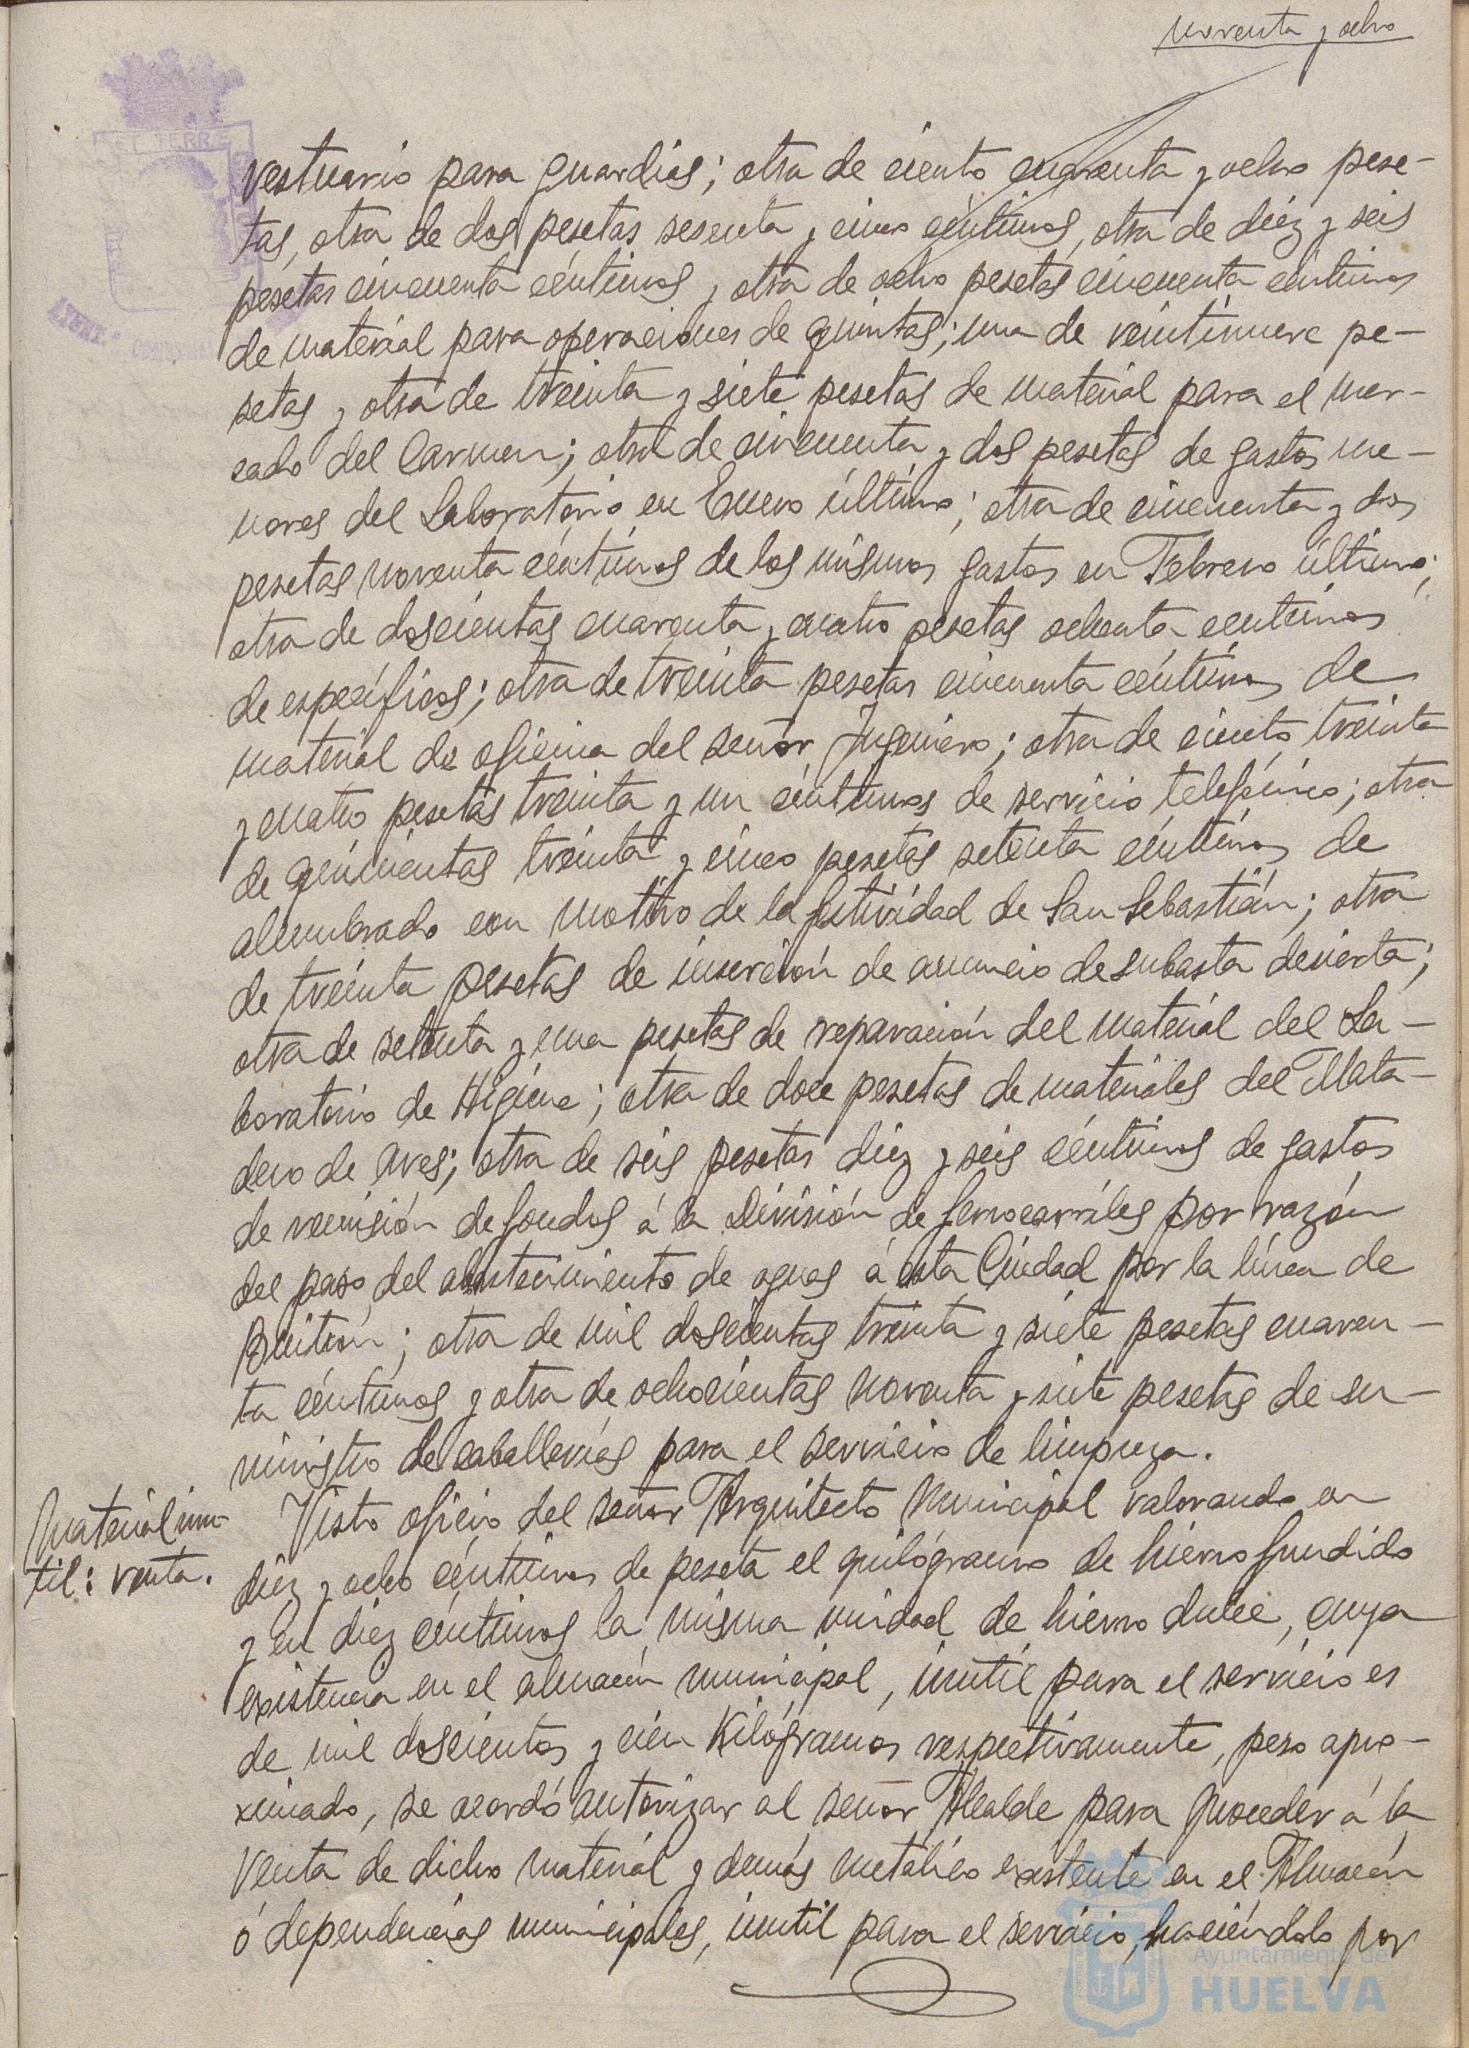 noventa y ocho
vestuario para guardias; otra de ciento cuarenta y ocho pese-
tas, otra de dos pesetas sesenta y cinco céntimos, otra de diez y seis
pesetas cincuenta céntimos y otra de ocho pesetas cincuenta céntimos
de material para operaciones de quintas; una de veintinueve pe-
setas y otra de treinta y siete pesetas de material para el mer-
cado del Carmen; otra de cincuenta y dos pesetas de gastos me-
nores del Laboratorio en Enero último; otra de cincuenta y dos
pesetas noventa céntimos de los mismos gastos en Febrero último;
otra de doscientas cuarenta y cuatro pesetas ochenta céntimos
de específicos; otra de treinta pesetas cincuenta céntimos de
material de oficina del señor Ingeniero; otra de ciento treinta
y cuatro pesetas treinta y un céntimos de servicio telefónico; otra
de quinientas treinta y cinco pesetas setenta céntimos de
alumbrado con motivo de la festividad de San Sebastián; otra
de treinta pesetas de inserción de anuncio de subasta desierta;
otra de setenta y una pesetas de reparación del material del La-
boratorio de Higiene; otra de doce pesetas de materiales del Mata-
dero de Aves; otra de seis pesetas diez y seis céntimos de gastos
de remisión de fondos á la División de ferrocarriles por razón
del paso del abastecimiento de aguas á esta Ciudad por la línea de
Buitrón; otra de mil doscientas treinta y siete pesetas cuaren-
ta céntimos y otra de ochocientas noventa y siete pesetas de su-
ministro de caballerías para el servicio de limpieza.
Material inu-
til: venta.
Visto oficio del señor Arquitecto Municipal valorando en
diez y ocho céntimos de peseta el quilógramo de hierro fundido
y en diez céntimos la misma unidad de hierro dulce, cuya
existencia en el almacén municipal, inutil para el servicio es
de mil doscientos y cien Kilógramos respectivamente, peso apro-
ximado, se acordó autorizar al señor Alcalde para proceder á la
venta de dicho material y demás metálico existente en el Almacén
ó dependencias municipales, inutil para el servicio, haciéndolo por
Ayuntamiento de
HUELVA